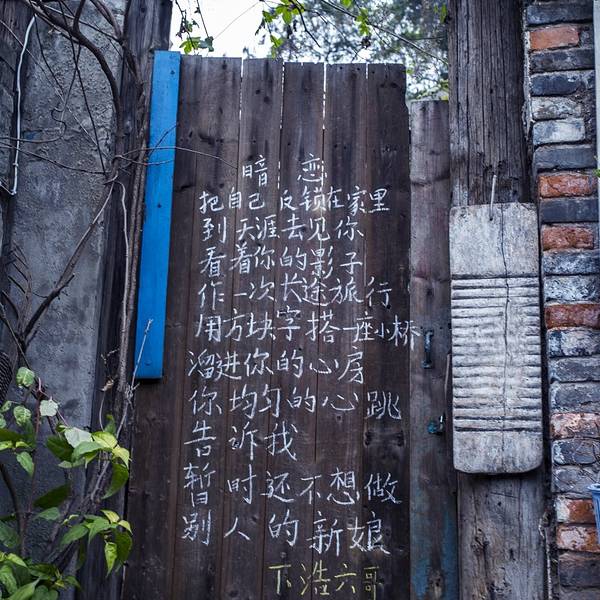 暗恋
把自己反锁在家里
到天涯去见你
看着你的影子
作一次长途旅行
用方块字搭一座小桥
溜进你的心房
你均匀的心跳
告诉我
暂时还不想做
别人的新娘
下浩六哥